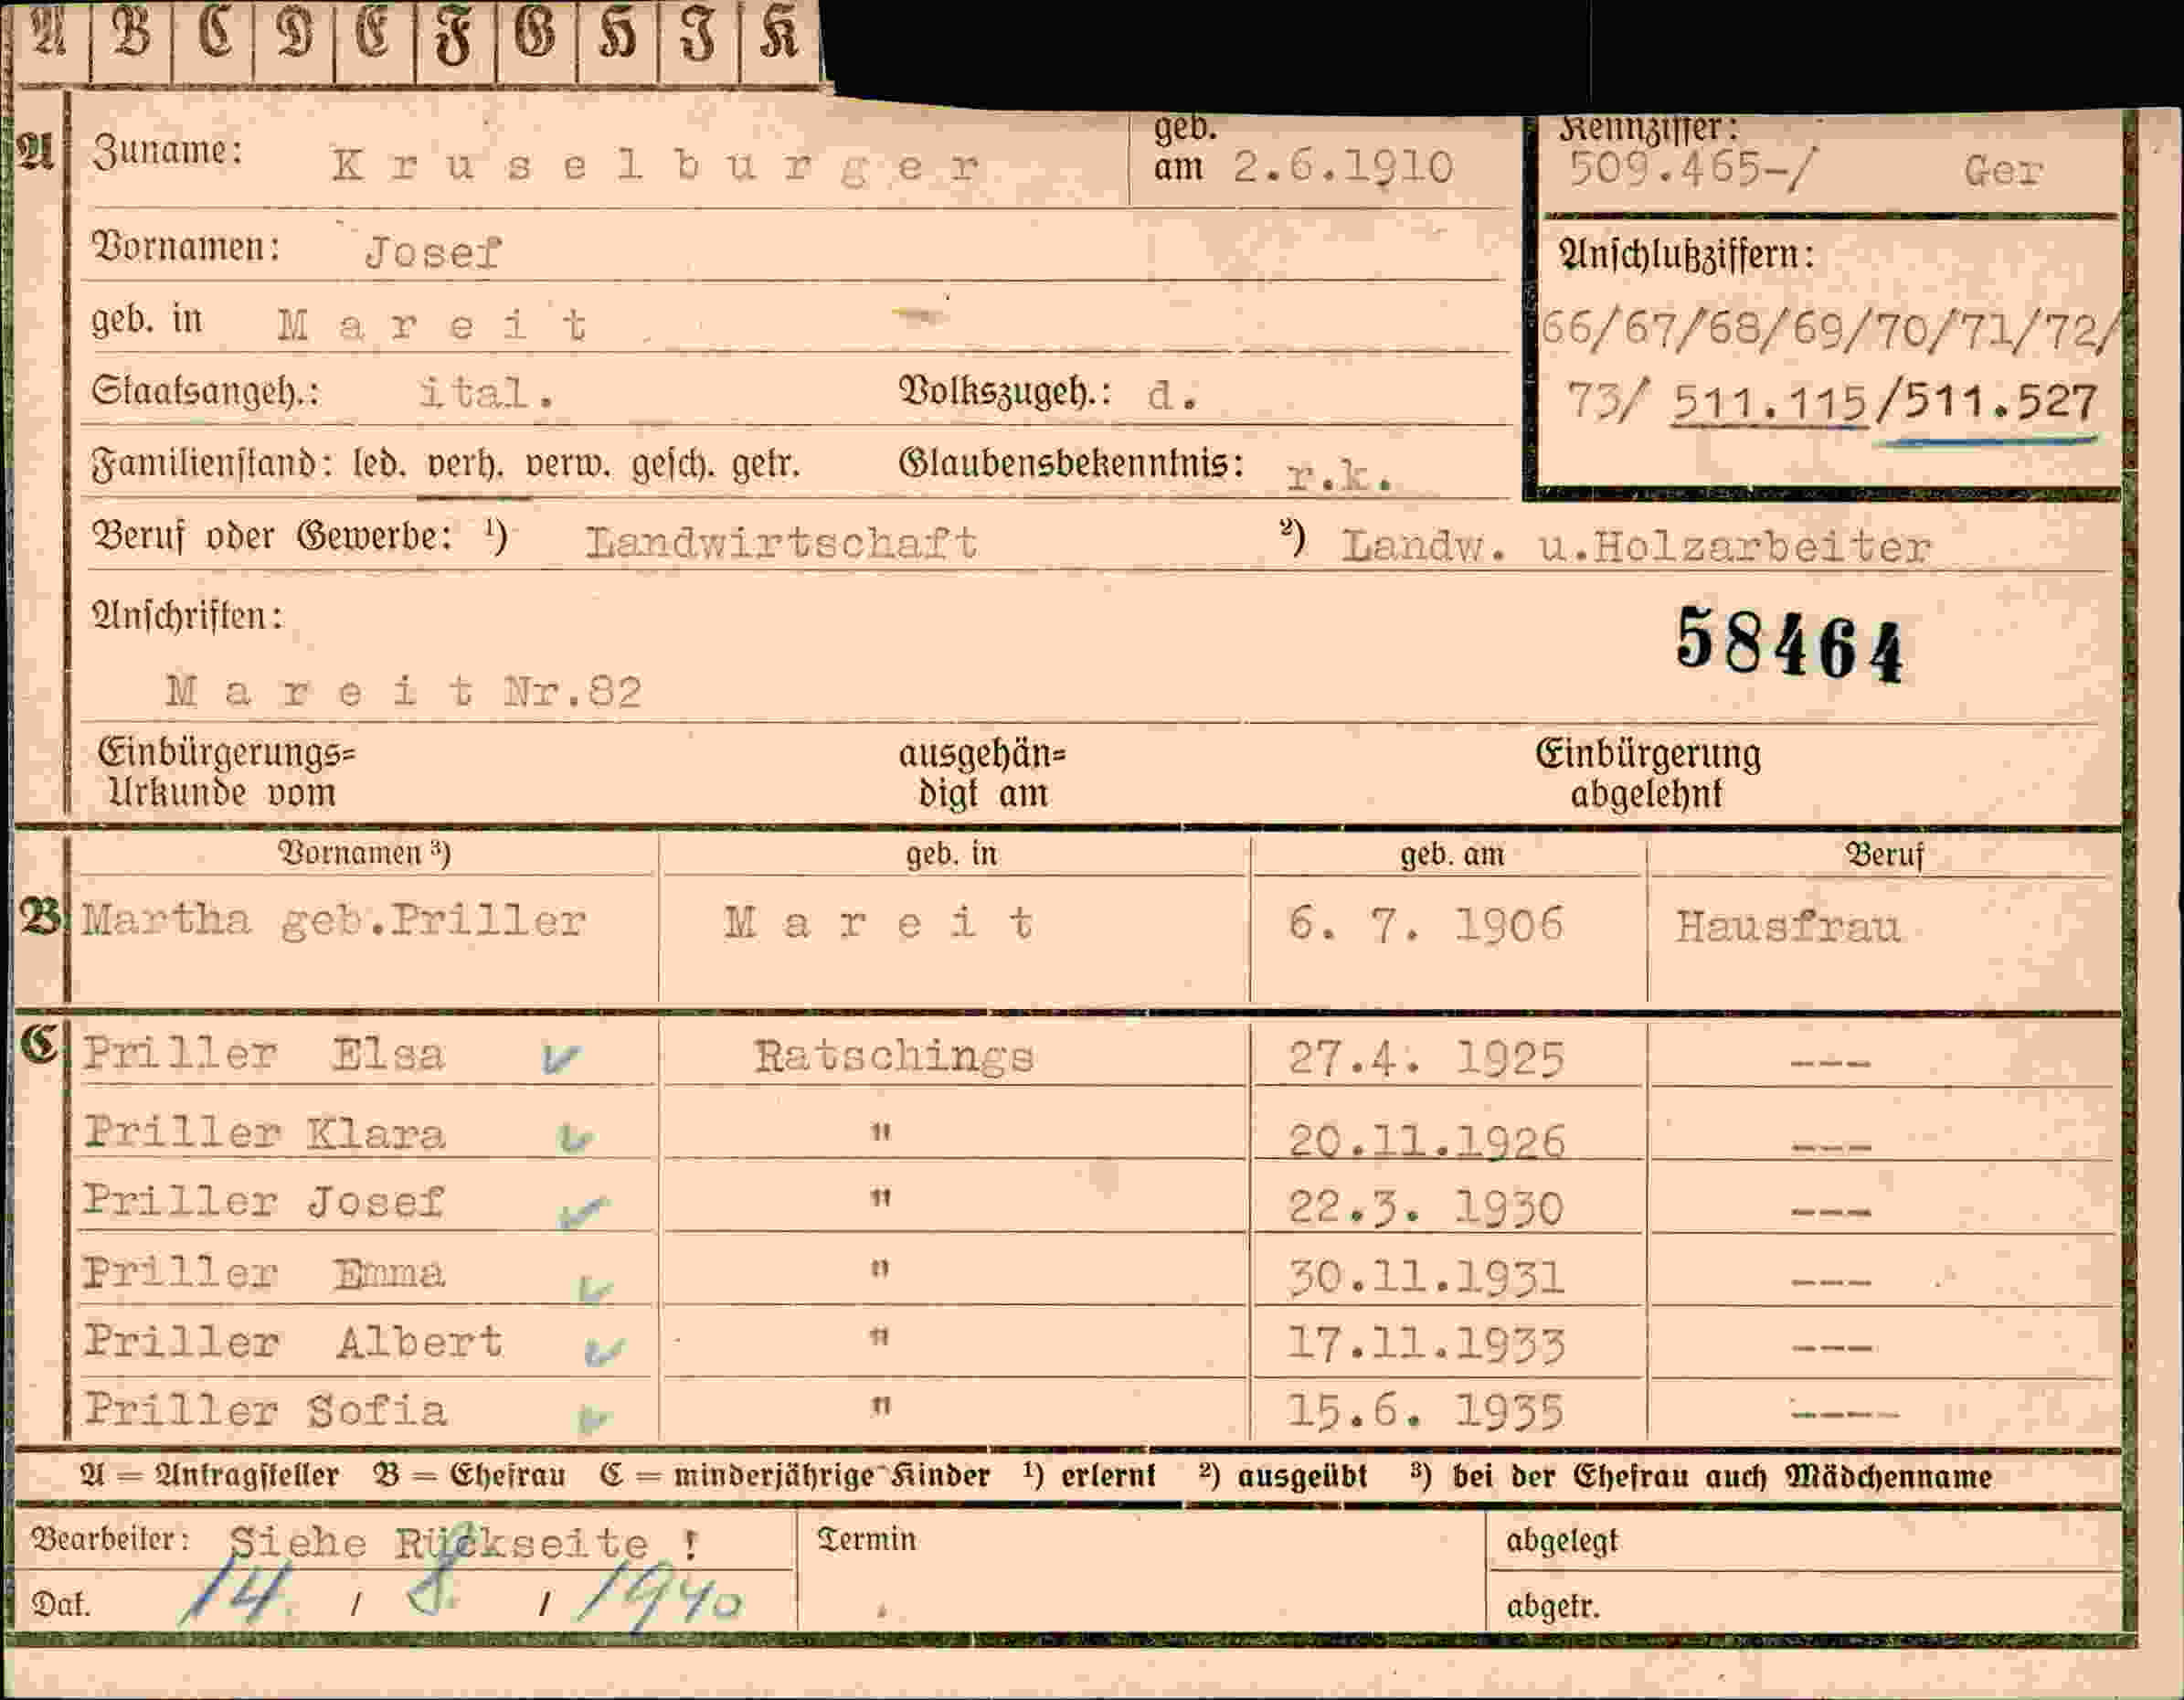 A B C D E F G H J K
A Zuname: Kruselburger geb. am 2.6.1910 Kennziffer: 509.465-/ Ger
Vornamen: Josef Anschlußziffern:
geb. in Mareit 66/67/68/69/70/71/72/
Staatsangeh.: ital. Volkszugeh.: d. 73/ 511.115/511.527
Familienstand: led. verh. verw. gesch. getr. Glaubensbekenntnis: r.k.
Beruf oder Gewerbe: ¹) Landwirtschaft ²) Landw. u.Holzarbeiter
Anschriften:
58464
Mareit Nr.82
Einbürgerungs= ausgehän= Einbürgerung
Urkunde vom digt am abgelehnt
Vornamen ³) geb. in geb. am Beruf
B Martha geb.Priller Mareit 6. 7. 1906 Hausfrau
C Priller Elsa Ratschings 27.4. 1925 ---
Priller Klara " 20.11.1926 ---
Priller Josef " 22.3. 1930 ---
Priller Emma " 30.11.1931 ---
Priller Albert " 17.11.1933 ---
Priller Sofia " 15.6. 1935 ----
A = Antragsteller B = Ehefrau C = minderjährige Kinder ¹) erlernt ²) ausgeübt ³) bei der Ehefrau auch Mädchenname
Bearbeiter: Siehe Rückseite ! Termin abgelegt
Dat. 14. / 8. / 1940 abgetr.